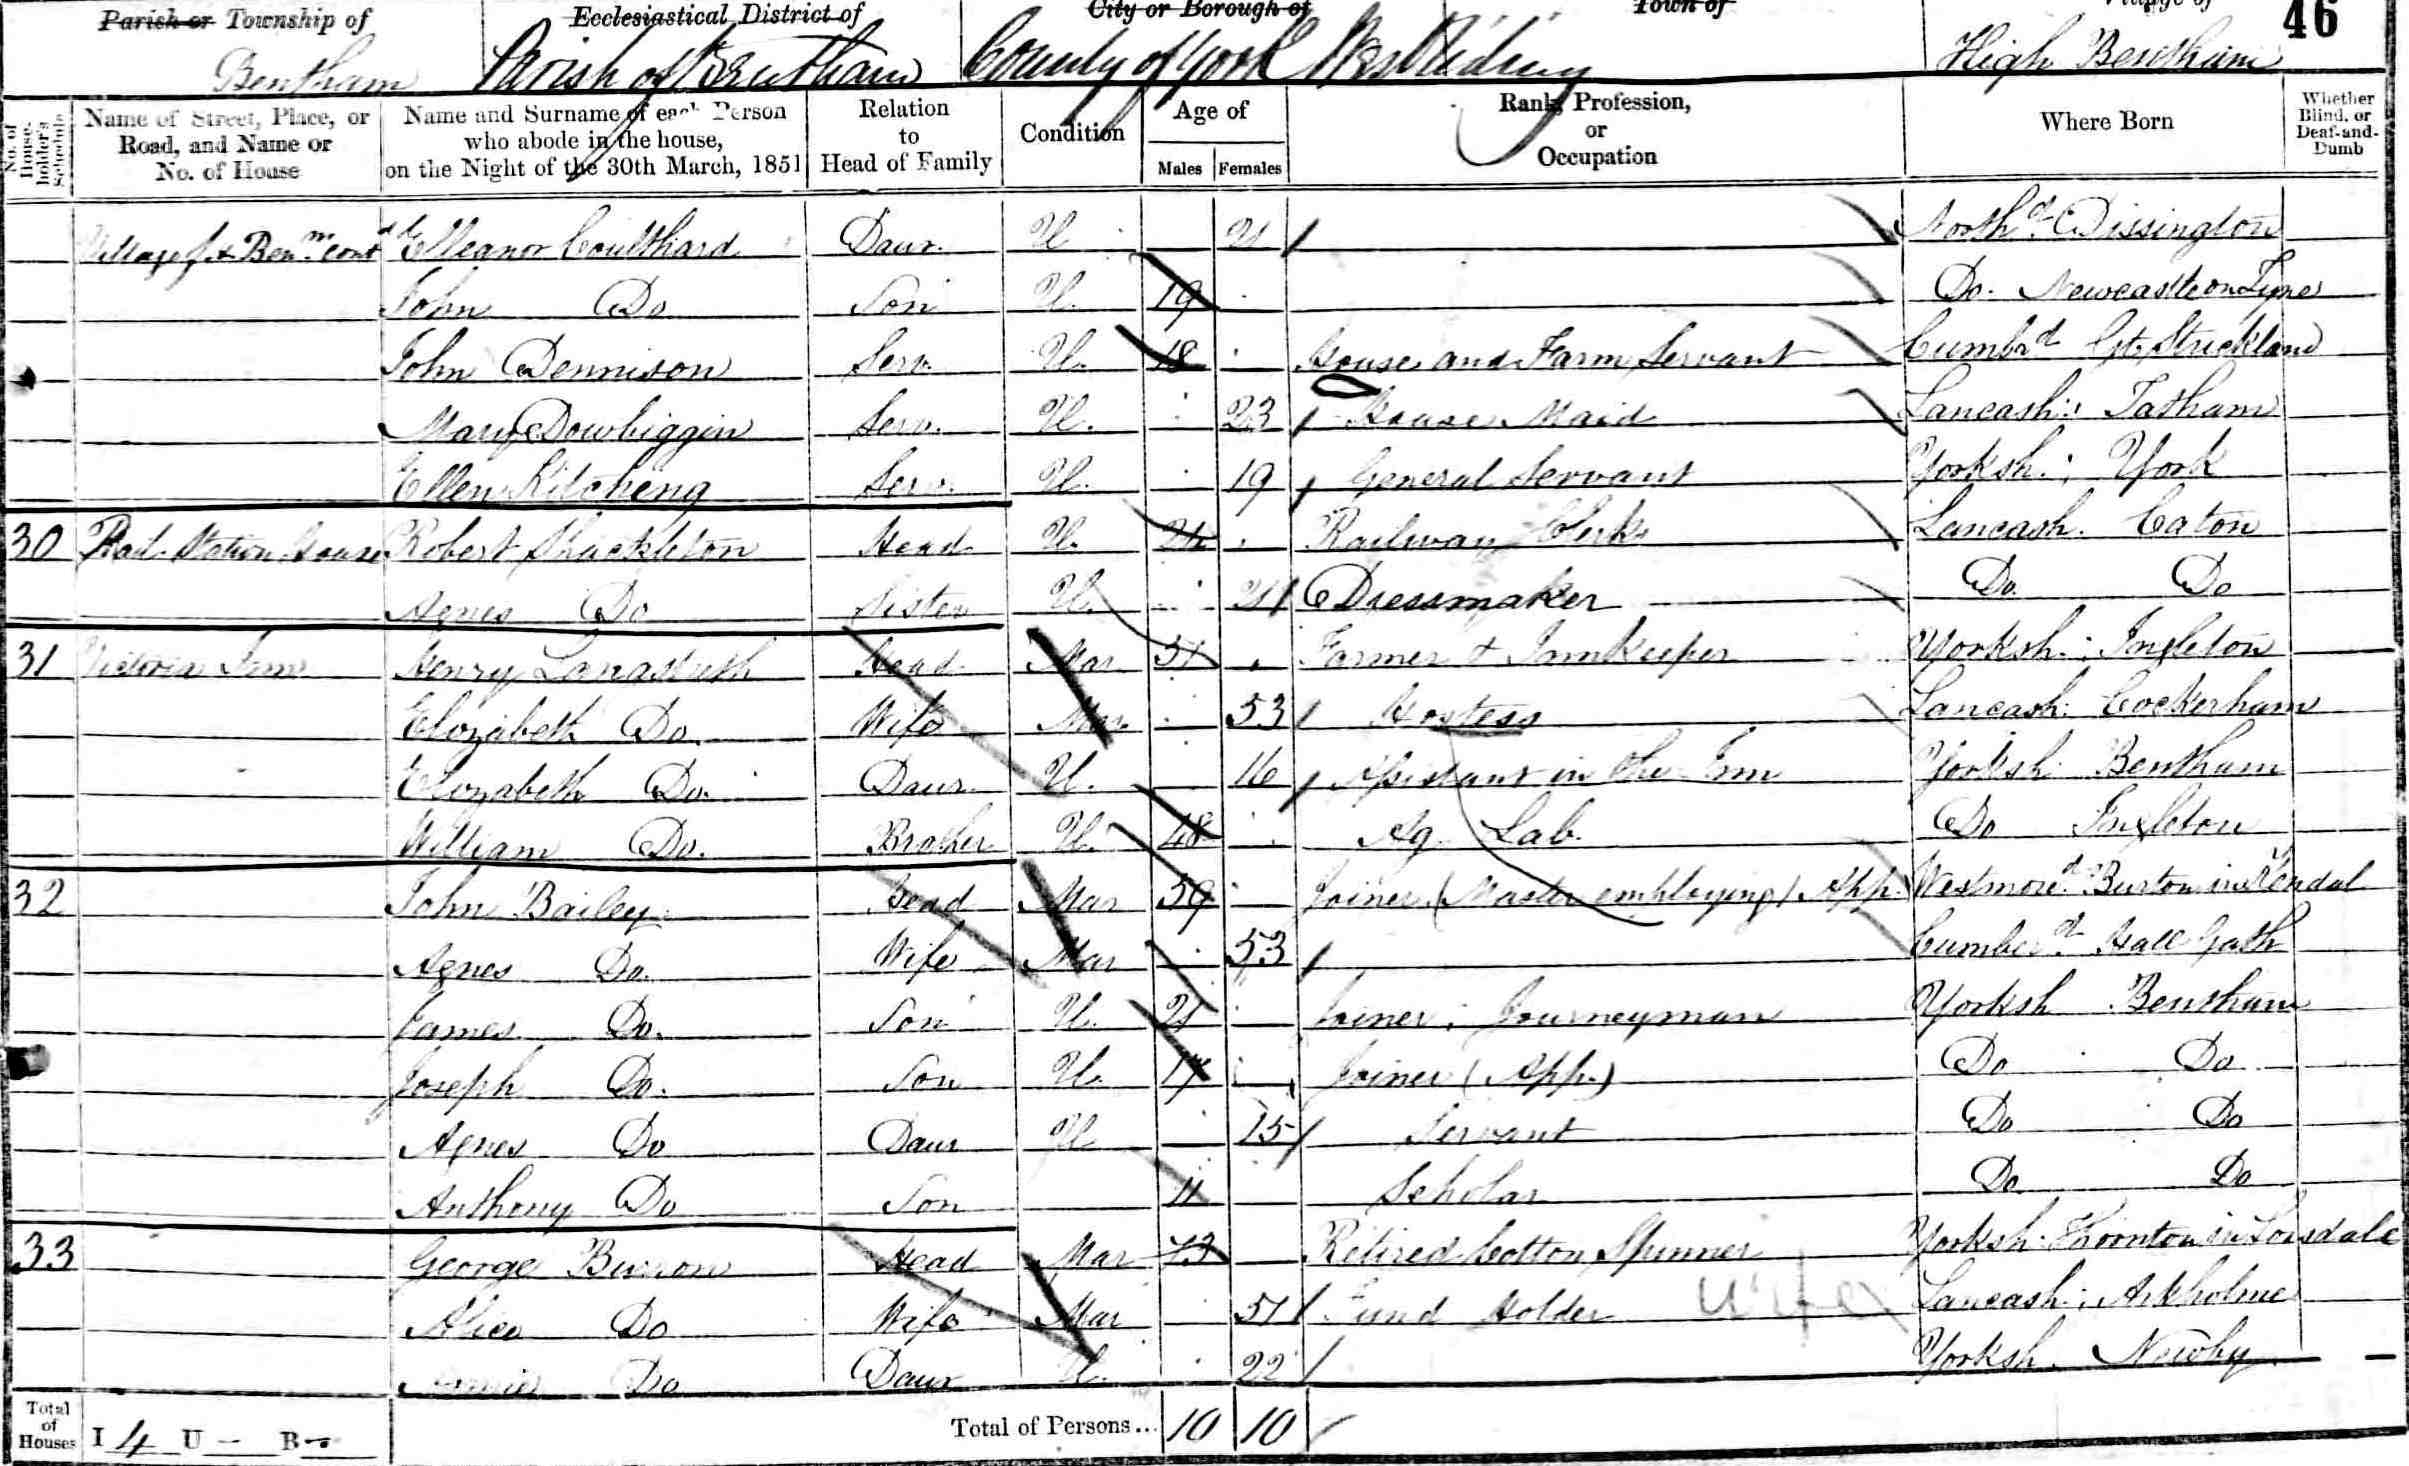 Parish or Township of Ecclesiastical District of City or Borough of Town of Village of 46
Bentham Parish of Bentham County of York West Riding High Bentham
No. of House-holder's Schedule Name of Street, Place, or Road, and Name or No. of House Name and Surname of each Person who abode in the house, on the Night of the 30th March, 1851 Relation to Head of Family Condition Age of Males Females Rank, Profession, or Occupation Where Born Whether Blind, or Deaf-and-Dumb
Village Benm. contd Elleanor Coulthard Daur. U 21 Northd. Dissington
John Do Son U. 19 Do. Newcastle on Tyne
John Dennison Serv. U. 18 House and Farm Servant Cumbrd Gt. Strickland
Mary Dowbiggin Serv. U. 23 House Maid Lancash: Tatham
Ellen Kitcheng Serv. U. 19 General Servant Yorksh: York
30 Rail Station House Robert Shackleton Head U. 24 Railway Clerk Lancash. Caton
Agnes Do Sister U. 21 Dressmaker Do. Do
31 Victoria Inn Henry Head Mar 51 Farmer & Innkeeper Yorksh: Ingleton
Elizabeth Do. Wife Mar 53 Hostess Lancash: Cockerham
Elizabeth Do. Daur. U. 16 Assistant in the Inn Yorksh Bentham
William Do. Brother U. 48 Ag. Lab. Do Ingleton
32 John Bailey Head Mar 59 Joiner (Master employing 1 App.) Westmored. Burton in Kendal
Agnes Do. Wife Mar 53 Cumberd.
James Do. Son U. 21 Joiner: Journeyman Yorksh Bentham
Joseph Do. Son U. 17 Joiner (App.) Do Do
Agnes Do Daur U 15 Servant Do Do
Anthony Do Son 11 Scholar Do Do
33 George Burrow Head Mar 73 Retired Cotton Spinner Yorksh: Thornton in Lonsdale
Alice Do Wife Mar 51 Fund Holder wife Lancash: Arkholme
Do Daur U. 22 Yorksh. Newby
Total of Houses I 4 U - B - Total of Persons... 10 10